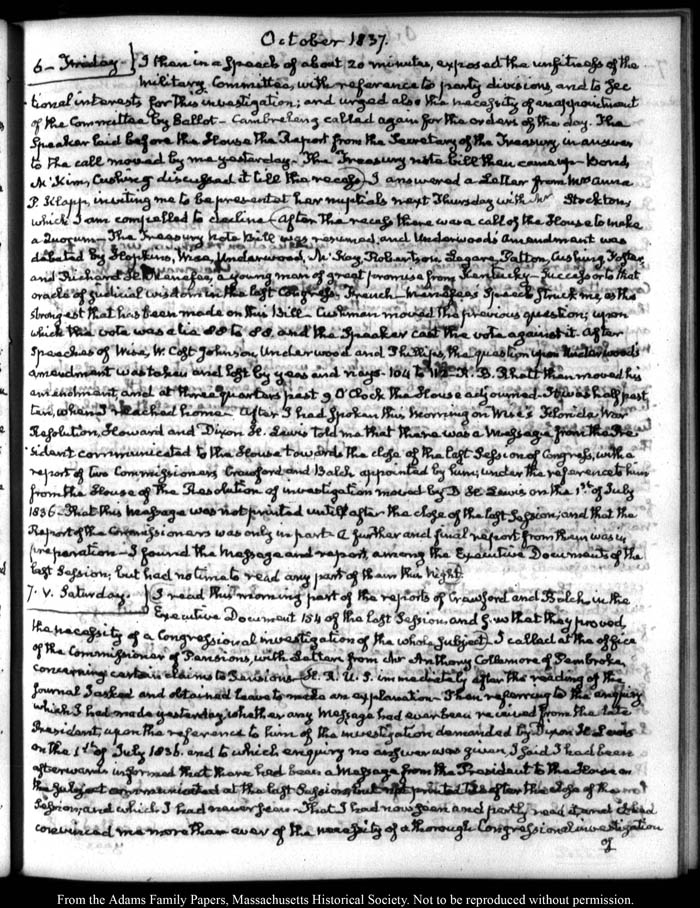 October 1837.
6 – Friday – I then in a Speech of about 20 minutes, exposed the unfitness of the
Military Committee, with reference to party divisions, and to Sec-
tional interests for this investigation; and urged also the necessity of an appointment
of the Committee by Ballot – Cambreleng called again for the orders of the day. The
Speaker laid before the House the Report from the Secretary of the Treasury, in answer
to the call moved by me yesterday – The Treasury note bill then came up – Bond,
McKim, Cushing discussed it till the recess) I answered a Letter from Mrs Anna
P. Klapp, inviting me to be present at her nuptials next Thursday with Mr Stockton,
which I am compelled to decline (after the recess there was a call of the House to make
a Quorum – The Treasury Note Bill was resumed, and Underwood's Amendment was
debated by Hopkins, Wise, Underwood, McKay, Robertson, Legare, Patton, Cushing, Foster,
and Richard H. Menefee, a young man of great promise from Kentucky – Successor to that
oracle of judicial wisdom in the last Congress, French – Menefee's Speech struck me, as the
strongest that has been made on this Bill – Cushman moved the previous question; upon
which the vote was 88 to 88, and the Speaker cast the vote against it. After
Speeches of Wise, W. Cost Johnson, Underwood and Phillips, the question upon Underwood's
amendment was taken and lost by yeas and nays – 104 to R. B. Rhett then moved his
amendment, and at three quarters past 9 O'Clock the House adjourned – It was half past
ten, when I reached home – After I had spoken this morning on Wise's Florida War
Resolution, Howard and Dixon H. Lewis told me that there was a Message from the Pre-
sident communicated to the House towards the close of the last Session of Congress, with a
report of two Commissioners Crawford and Balch appointed by him; under the reference to him
from the House of the Resolution of investigation moved by D. H. Lewis on the 1st of July
1836 – That this Message was not printed untill after the close of the last Session; and that the
Report of the Commissioners was only in part – A further and final report from them was in
preparation – I found the Message and report, among the Executive Documents of the
last Session; but had no time to read any part of them this Night.
7. V. Saturday. I read this morning part of the reports of Crawford and Balch in the
Executive Document 154 of the last Session, and saw that they proved
the necessity of a Congressional investigation of the whole Subject) I called at the office
of the Commissioner of Pensions, with Letters from Mr Anthony Collamore of Pembroke,
concerning certain claims to Pensions – H. R. U. S. immediately after the reading of the
Journal I asked and obtained leave to make an explanation – Then referring to the enquiry
which I had made yesterday, whether any Message had ever been received from the late
President, upon the reference to him of the investigation demanded by Dixon H. Lewis
on the 1st of July 1836. and to which enquiry no answer was given, I said I had been
afterwards informed that there had been a Message from the President to the House on
the Subject communicated at the last Session, but not printed till after the close of the
Session, and which I had never seen – That I had now seen and partly read it, and it had
convinced me more than ever of the necessity of a thorough Congressional investigation
of
From the Adams Family Papers, Massachusetts Historical Society. Not to be reproduced without permission.